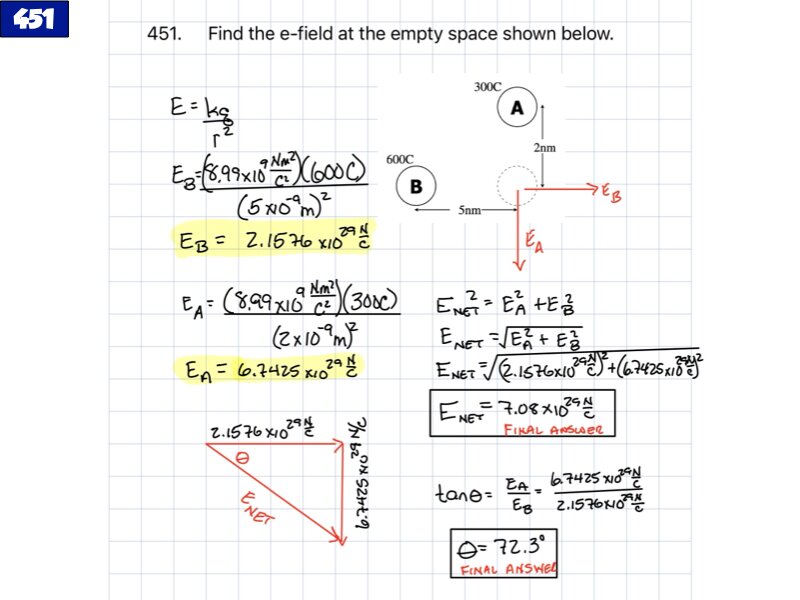 451
451. Find the e-field at the empty space shown below.
300C
A
2nm
600C
B
5nm
E_B
E_A
E = kq/r²
E_B = (8.99x10⁹ Nm²/C²)(600C)/(5x10⁻⁹m)²
E_B = 2.1576 x10²⁹ N/C
E_A = (8.99x10⁹ Nm²/C²)(300C)/(2x10⁻⁹m)²
E_A = 6.7425 x10²⁹ N/C
E_NET² = E_A² + E_B²
E_NET = √(E_A² + E_B²)
E_NET = √((2.1576x10²⁹ N/C)² + (6.7425x10²⁹ N/C)²)
E_NET = 7.08x10²⁹ N/C
FINAL ANSWER
2.1576 x10²⁹ N/C
θ
E_NET
6.7425x10²⁹ N/C
tanθ = E_A/E_B = 6.7425 x10²⁹ N/C / 2.1576x10²⁹ N/C
θ = 72.3°
FINAL ANSWER